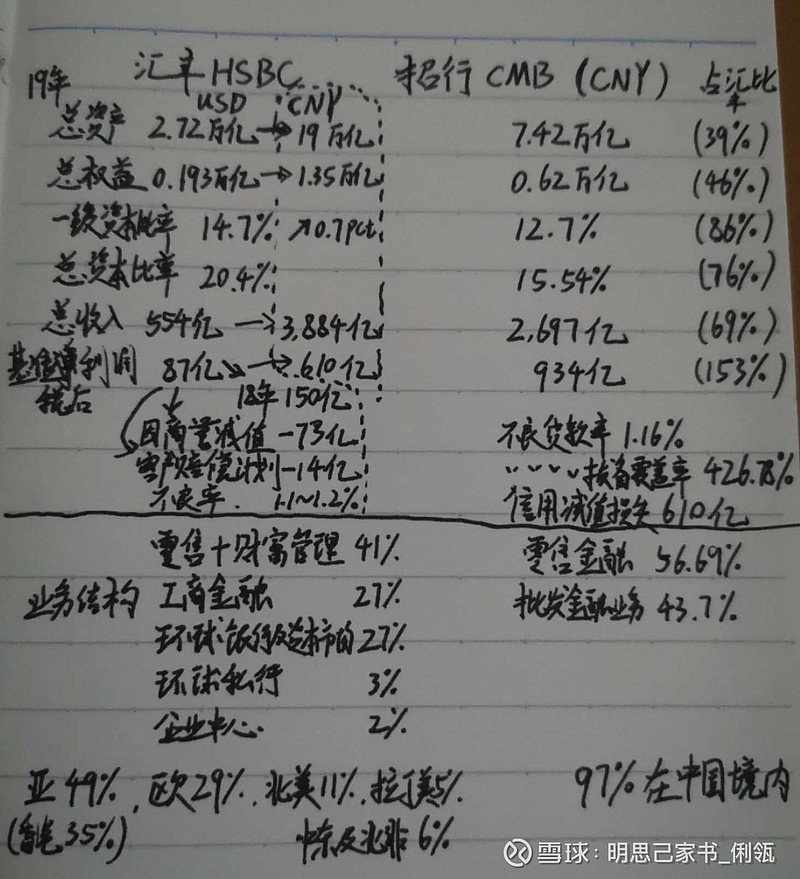 19年 汇丰HSBC 招行 CMB (CNY) 占汇比率
USD CNY
总资产 2.72万亿 → 19万亿 7.42万亿 (39%)
总权益 0.193万亿 → 1.35万亿 0.62万亿 (46%)
一级资本比率 14.7% ↗0.7pct 12.7% (86%)
总资本比率 20.4% 15.54% (76%)
总收入 554亿 → 3,884亿 2,697亿 (69%)
基准净利润 87亿↘ → 610亿 934亿 (153%)
税后 18年150亿
因商誉减值 -73亿 不良贷款率 1.16%
客户赔偿计划 -14亿 〃〃〃〃拨备覆盖率 426.78%
不良率 1.1~1.2% 信用减值损失 610亿
零售+财富管理 41% 零售金融 56.69%
业务结构 工商金融 27% 批发金融业务 43.7%
环球银行及资本市场 27%
环球私行 3%
企业中心 2%
亚49%,欧29%,北美11%,拉丁美5% 97%在中国境内
(香港35%) 中东及北非 6%
雪球:明思己家书_俐瓴